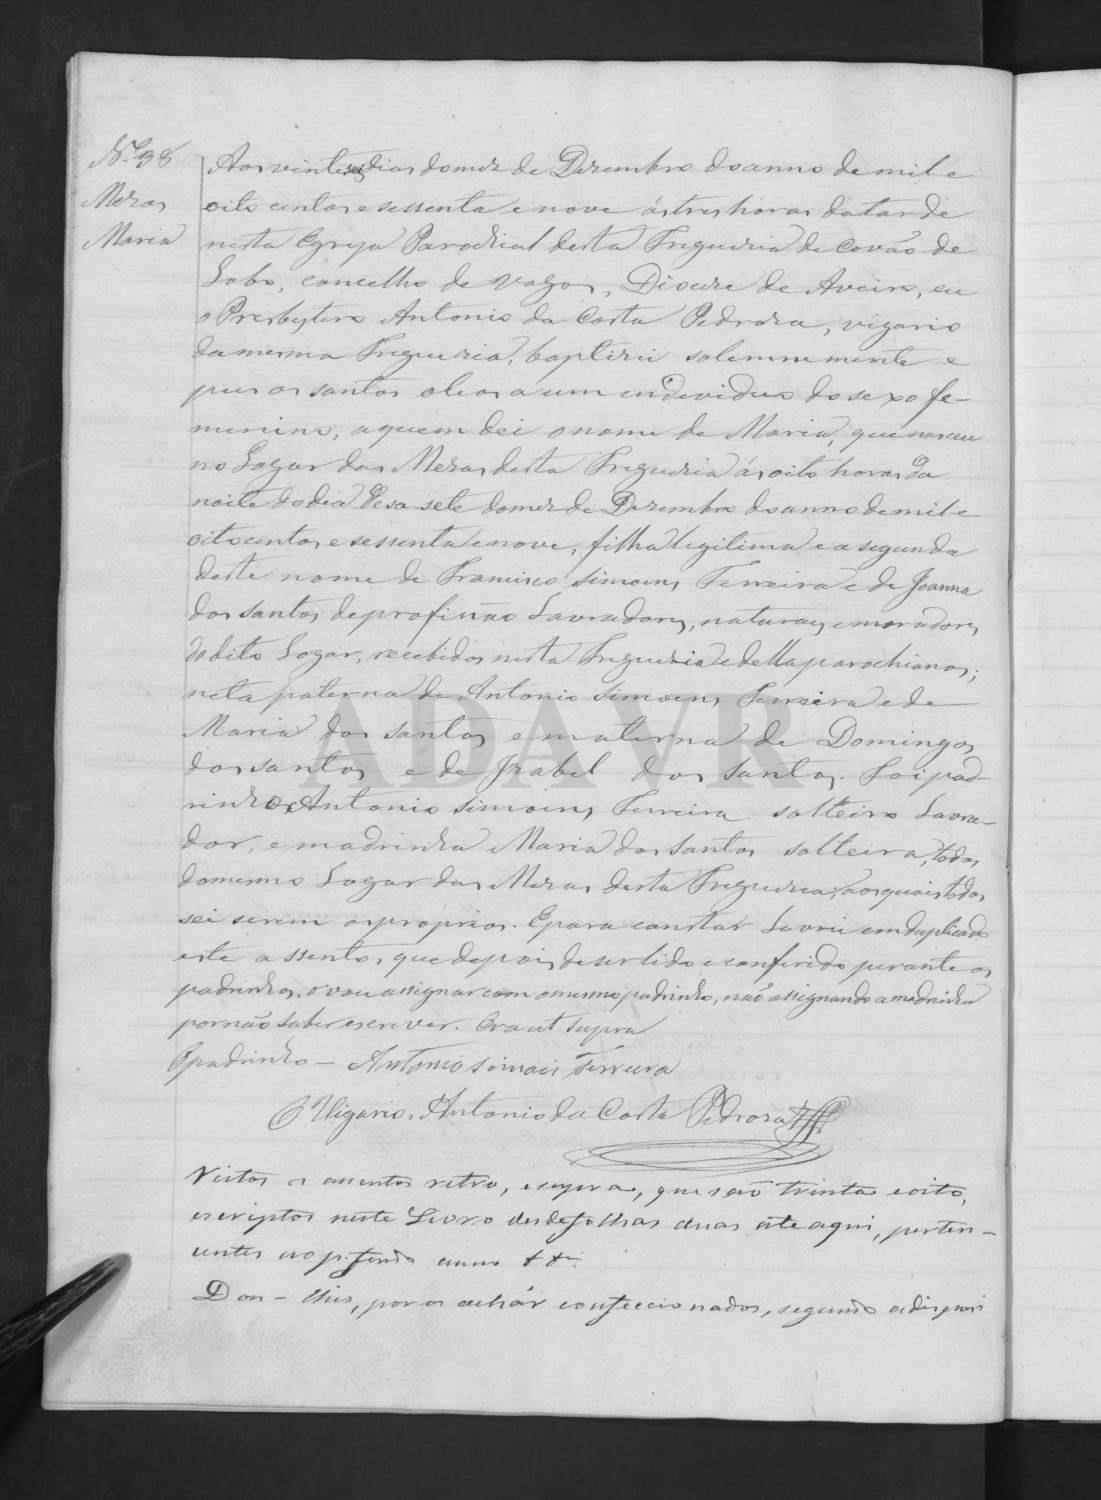 Nº 38
Mezas
Maria
Aos vinte seis dias do mez de Dezembro do anno de mil e
oito centos e sessenta e nove ás tres horas da tarde
nesta Egreja Parochial desta Freguezia de Covão de
Lobo, concelho de Vagos, Diocese de Aveiro, eu
o Presbytero Antonio da Costa Pedroza, vigario
da mesma Freguezia, baptizei solemnemente e
puz os santos oleos a um individuo do sexo fe-
menino, a quem dei o nome de Maria, que nasceu
no Logar das Mezas desta Freguezia ás oito horas da
noite do dia desasete do mez de Dezembro do anno de mil e
oito centos e sessenta e nove, filha legitima e a segunda
deste nome de Francisco Simoens Ferreira e de Joanna
dos Santos de profissão Lavradores, naturaes e moradores
do dito Logar, recebidos nesta Freguezia e della parochianos;
neta paterna de Antonio Simoens Ferreira e de
Maria dos Santos e materna de Domingos
dos Santos e de Izabel dos Santos. Foi pad-
rinho Antonio Simoens Ferreira solteiro Lavra-
dor, e madrinha Maria dos Santos solteira, todos
do mesmo Logar das Mezas desta Freguezia, aos quais todos
sei serem os proprios. E para constar Lavrei em duplicado
este assento, que depois de ser lido e conferido perante os
padrinhos, o vou assignar com o mesmo padrinho, não assignando a madrinha
por não saber escrever. Era ut supra
O padrinho - Antonio Simois Ferreira
O Vigario, Antonio da Costa Pedroza
Vistos os assentos retro, e supra, que são trinta e oito,
escriptos neste Livro desde folhas duas até aqui, perten-
centes ao anno
Dou-lhes, por os achár confeccionados, segundo a dispozi
ADAVR